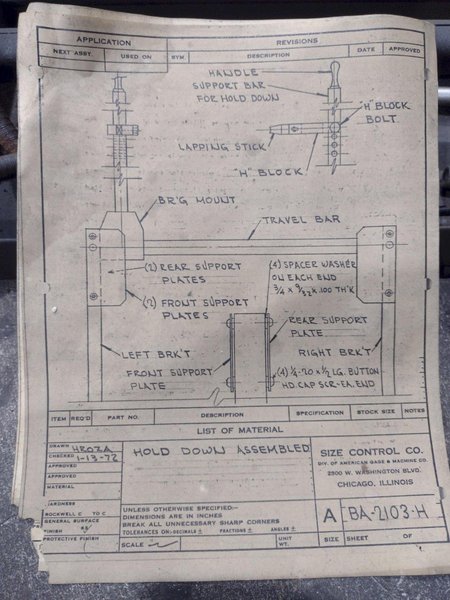 APPLICATION
REVISIONS
NEXT ASSY.
USED ON
SYM.
DESCRIPTION
DATE
APPROVED
HANDLE
SUPPORT BAR
FOR HOLD DOWN
"H" BLOCK
BOLT
LAPPING STICK
"H" BLOCK
BR'G MOUNT
TRAVEL BAR
(2) REAR SUPPORT
PLATES
(4) SPACER WASHER
ON EACH END
3/4 x 9/32 x .100 TH'K
(2) FRONT SUPPORT
PLATES
REAR SUPPORT
PLATE
LEFT BRK'T
FRONT SUPPORT
PLATE
RIGHT BRK'T
(4) 1/4-20 x 1/2 LG. BUTTON
HD. CAP SCR-EA. END
ITEM
REQ'D
PART NO.
DESCRIPTION
SPECIFICATION
STOCK SIZE
NOTES
LIST OF MATERIAL
DRAWN HROZA
CHECKED 1-13-72
APPROVED
APPROVED
MATERIAL
HARDNESS
ROCKWELL C TO C
GENERAL SURFACE
FINISH
PROTECTIVE FINISH
HOLD DOWN ASSEMBLED
UNLESS OTHERWISE SPECIFIED—
DIMENSIONS ARE IN INCHES
BREAK ALL UNNECESSARY SHARP CORNERS
TOLERANCES ON-DECIMALS ± FRACTIONS ± ANGLES ±
SCALE
UNIT
WT.
SIZE CONTROL CO.
DIV. OF AMERICAN GAGE & MACHINE CO.
2500 W. WASHINGTON BLVD.
CHICAGO, ILLINOIS
A
BA-2103-H
SIZE
SHEET
OF